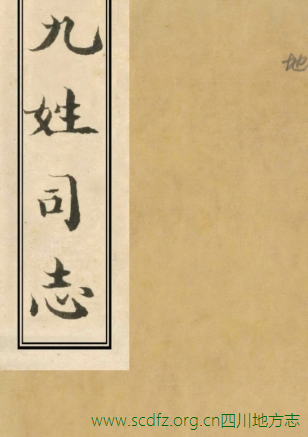 九姓司志
地
www.scdfz.org.cn四川地方志